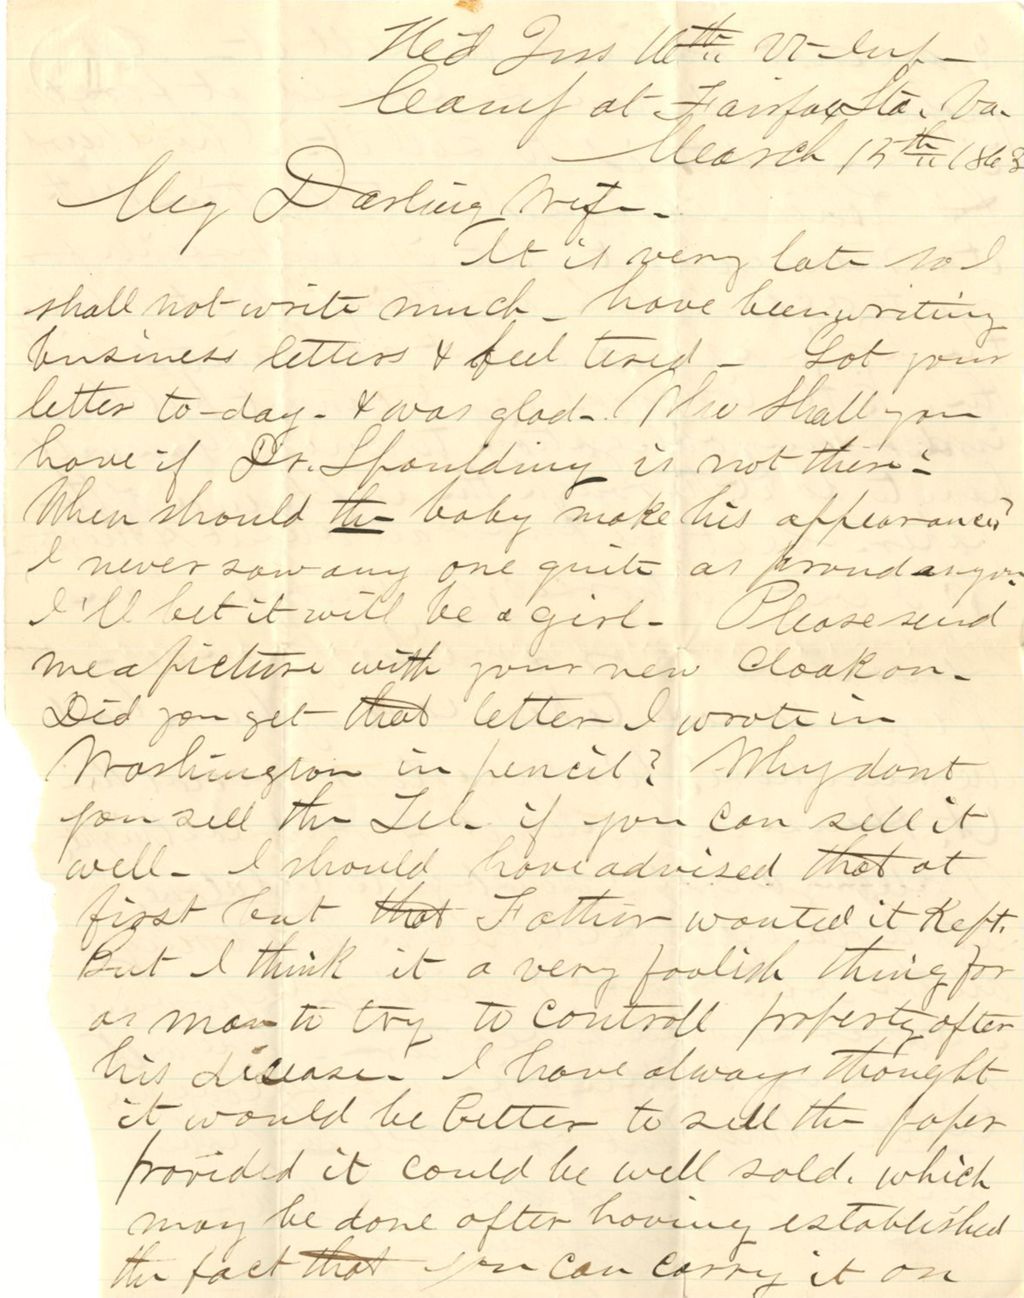 Hed Qrs 16th Vt Inf-
Camp at Fairfax Sta. Va.
March 15th 1863
My Darling Wife-
It is very late so I
shall not write much- have been writing
business letters & feel tired- Got your
letter to-day- & was glad- Who shall you
have if Dr. Spaulding is not there-
When should the baby make his appearance?
I never saw any one quite as proud as you.
I'll bet it will be a girl- Please send
me a picture with your new cloak on-
Did you get that letter I wrote in
Washington in pencil? Why dont
you sell the Tel. if you can sell it
well- I should have advised that at
first but that Father wanted it kept.
But I think it a very foolish thing for
a man to try to controll property after
his disease- I have always thought
it would be better to sell the paper
provided it could be well sold. which
may be done after having established
the fact that you can carry it on